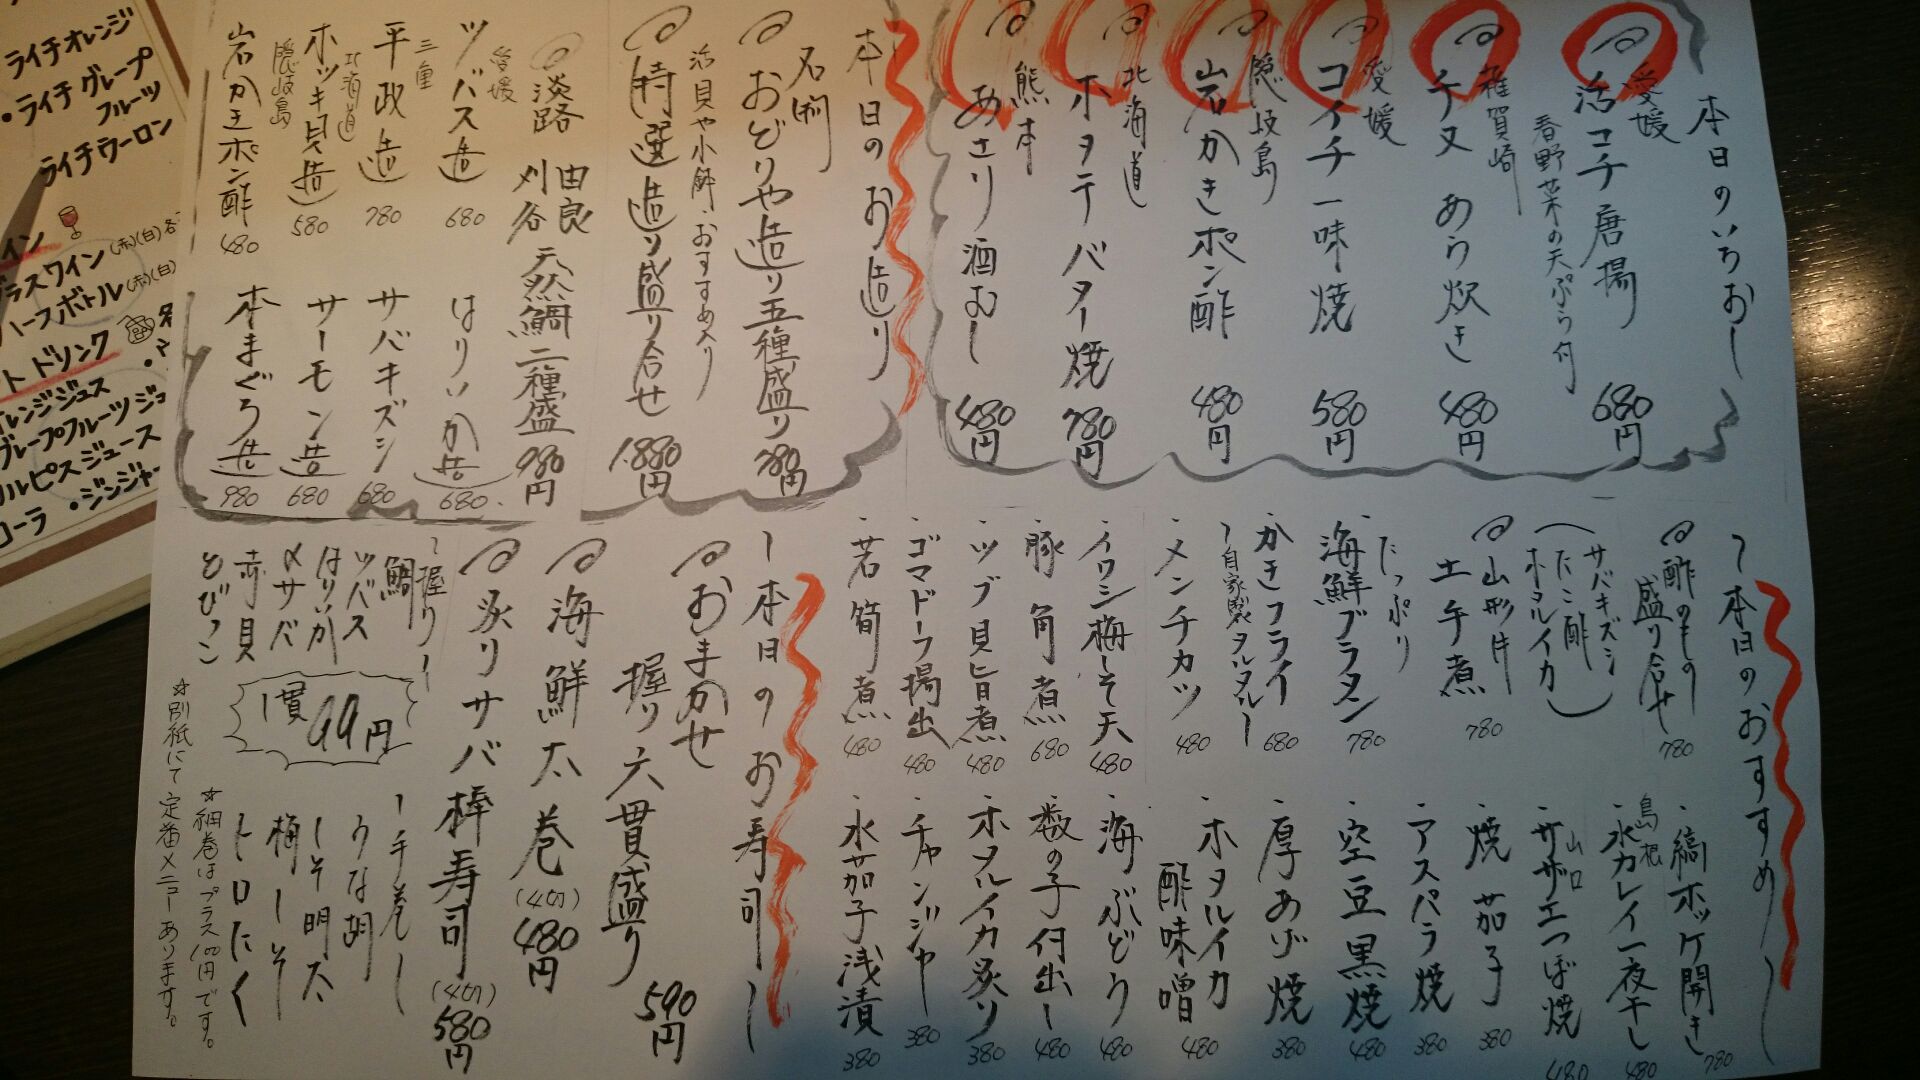 本日のいちおし
愛媛
活コチ唐揚
春野菜の天ぷら付
680円
雑賀崎
チヌあら炊き
480円
愛媛
コイチ一味焼
580円
隠岐島
岩かきポン酢
480円
北海道
ホタテバター焼
780円
熊本
あさり酒むし
480円
本日のお造り
名物
おどりや造り五種盛り
780円
活貝や小鉢、おすすめ入り
特選造り盛り合せ
1.880円
淡路
由良
刈谷
天然鯛二種盛
980円
愛媛
ツバス造
680
三重
平政造
780
北海道
ホッキ貝造
580
隠岐島
岩かきポン酢
480
はりいか造
680
サバキズシ
680
サーモン造
680
本まぐろ造
980
〜本日のおすすめ〜
酢のもの
盛り合せ
780
(サバキズシ
たこ酢
ホタルイカ)
山形牛
土手煮
780
たっぷり
海鮮グラタン
780
・かきフライ
〜自家製タルタル〜
680
・メンチカツ
480
・イワシ梅しそ天
480
・豚角煮
680
・ツブ貝旨煮
480
・ゴマドーフ揚出
480
・若筍煮
480
・縞ホッケ開き
780
島根
・水カレイ一夜干し
480
山口
・サザエつぼ焼
480
・焼茄子
380
・アスパラ焼
380
・空豆黒焼
480
・厚あげ焼
380
・ホタルイカ
酢味噌
480
・海ぶどう
480
・数の子付出し
480
・ホタルイカ炙り
380
・チャンジャ
380
・水茄子浅漬
380
〜本日のお寿司〜
おまかせ
握り六貫盛り
590円
海鮮太巻
(4切)
480円
炙りサバ棒寿司
(4切)
580円
〜握り〜
鯛
ツバス
はりいか
〆サバ
赤貝
とびっこ
1貫99円
〜手巻〜
うな胡
しそ明太
梅しそ
トロたく
☆細巻はプラス100円です。
☆別紙にて定番メニューあります。
ライチオレンジ
・ライチグレープ
フルーツ
ライチウーロン
イン
ラスワイン(赤)(白)各
ハーフボトル(赤)(白)
ト ドリンク
レンジジュス
グレープフルーツジュ
ルピスジュース
・ジンジャー
コーラ